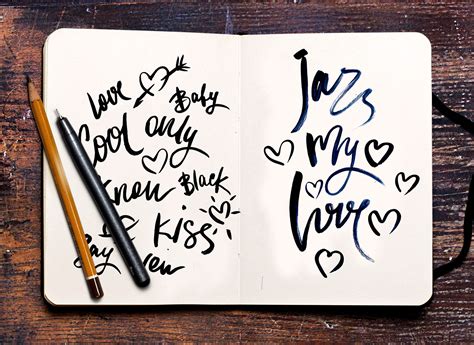 Love Baby
Cool only
Know Black
Kiss
Say
Jazz
My
Love